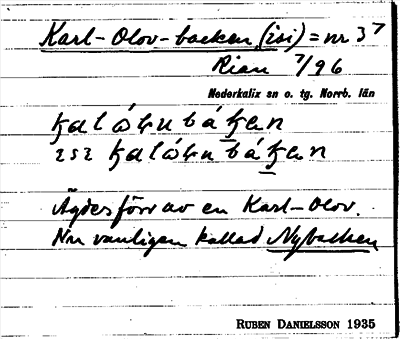 Karl-Olov-backen (isi) = nr 37
Rian 7/96
Nederkalix sn o. tg. Norrb. län
Ägdes förr av en Karl-Olov.
Nu vanligen kallad Nybacken
RUBEN DANIELSSON 1935